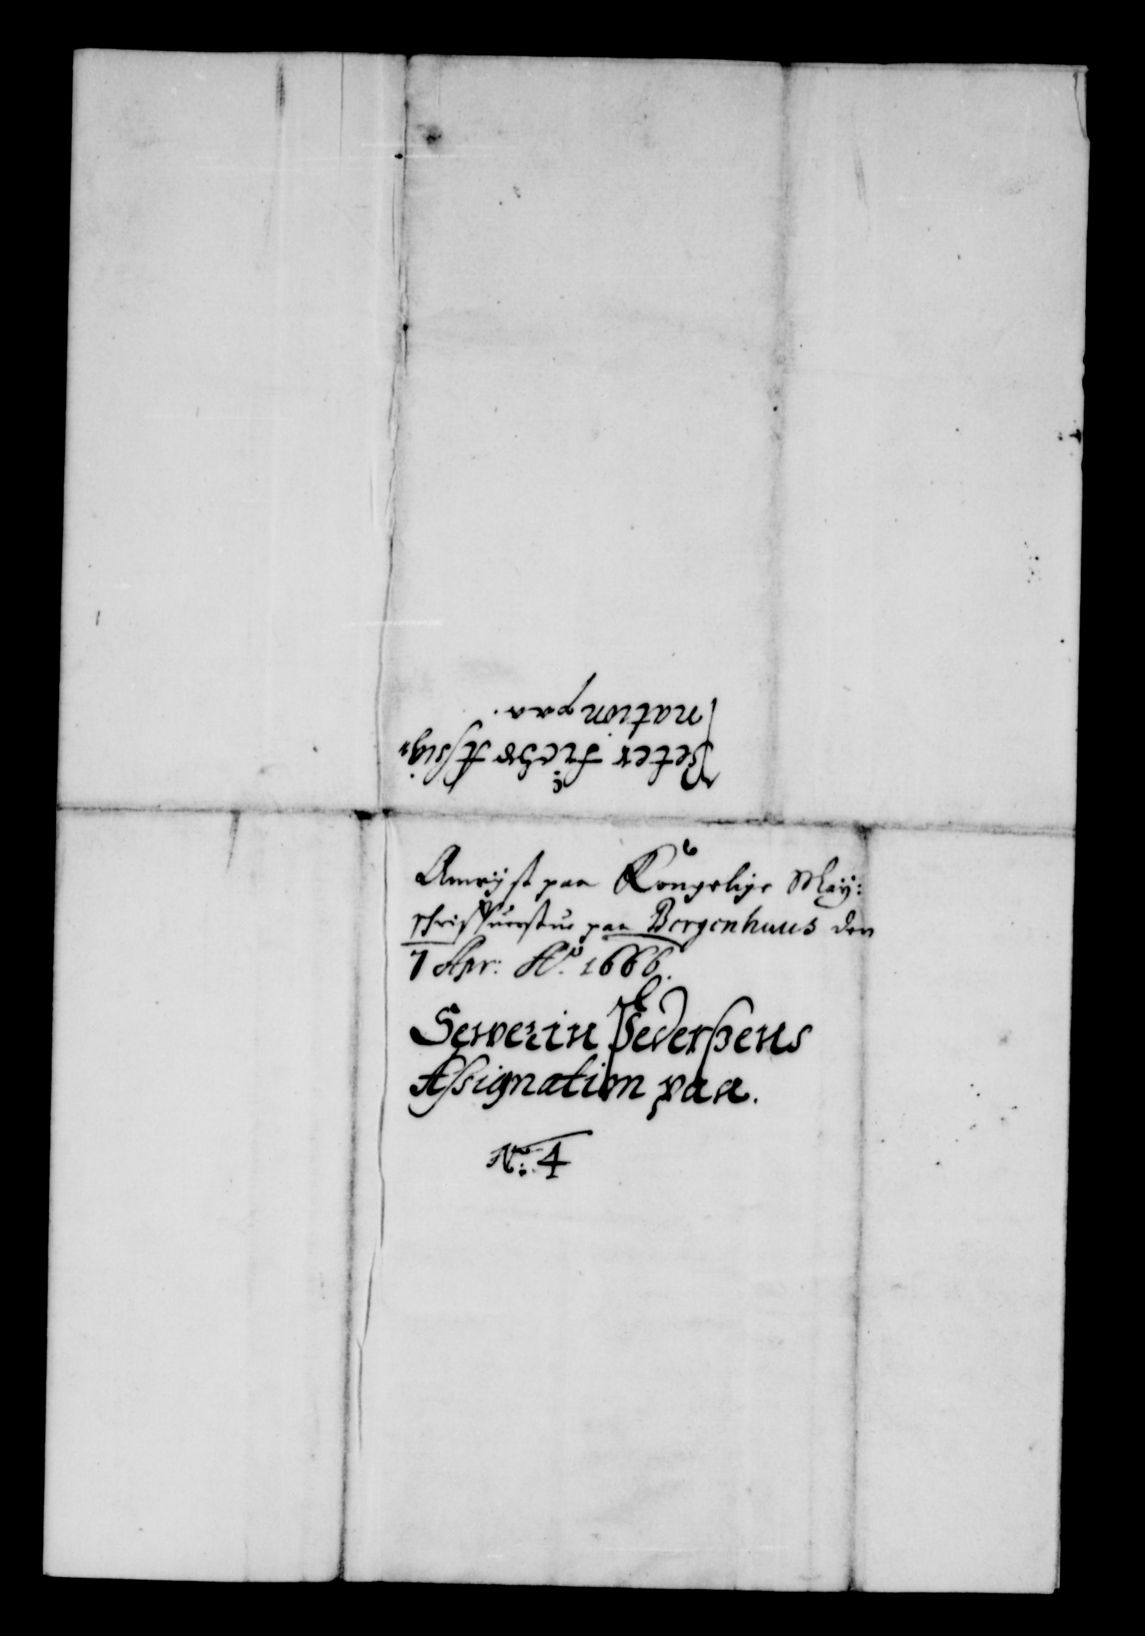 Peter Fechs Assig¬
nation paa.
Anvijst paa Kongelige Maij:
schriffuerstue paa Bergenhuus den
7 Apr: Ao. 1666.
Severin Pederßens
Assignation paa.
No: 4